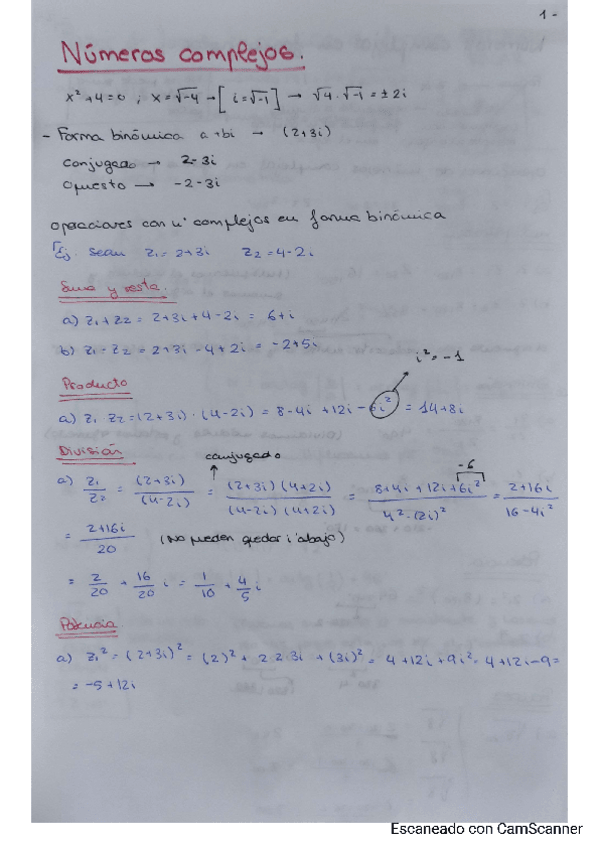 1-
Números complejos.
x²+4=0 ; x=√-4 → [ i=√-1 ] → √4 · √-1 = ± 2i
- Forma binómica a+bi → (2+3i)
Conjugado → 2-3i
Opuesto → -2-3i
Operaciones con nº complejos en forma binómica
Ej. Sean z₁=2+3i z₂=4-2i
Suma y resta.
a) z₁+z₂ = 2+3i+4-2i = 6+i
b) z₁-z₂ = 2+3i-4+2i = -2+5i
i²=-1
Producto
a) z₁·z₂=(2+3i)·(4-2i) = 8-4i+12i-6i² = 14+8i
División
conjugado
-6
a) z₁/z₂ = (2+3i)/(4-2i) = (2+3i)(4+2i)/(4-2i)(4+2i) = 8+4i+12i+6i²/4²-(2i)² = 2+16i/16-4i²
= 2+16i/20 (No pueden quedar i abajo)
= 2/20 + 16/20 i = 1/10 + 4/5 i
Potencia
a) z₁² = (2+3i)² = (2)² + 2·2·3i + (3i)² = 4+12i+9i² = 4+12i-9 =
= -5+12i
Escaneado con CamScanner